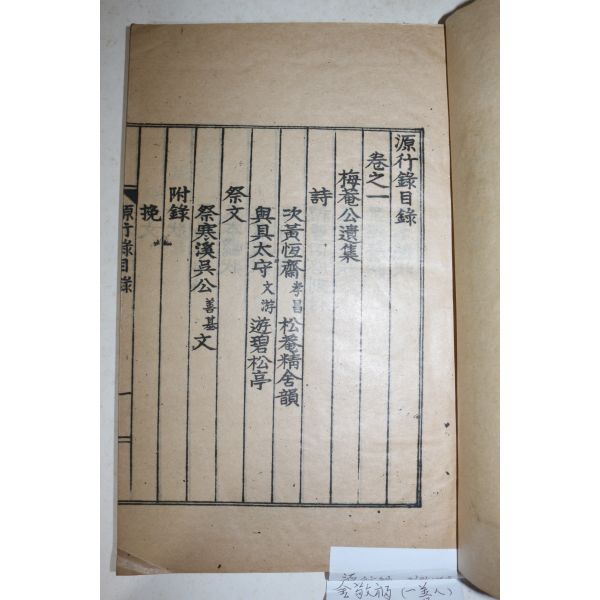 源行錄目錄
卷之一
梅菴公遺集
詩
次黃恆齋孝昌松菴精舍韻
與具太守文游遊碧松亭
祭文
祭寒溪吳公善基文
附錄
挽
源行錄目錄
一
(一善人)